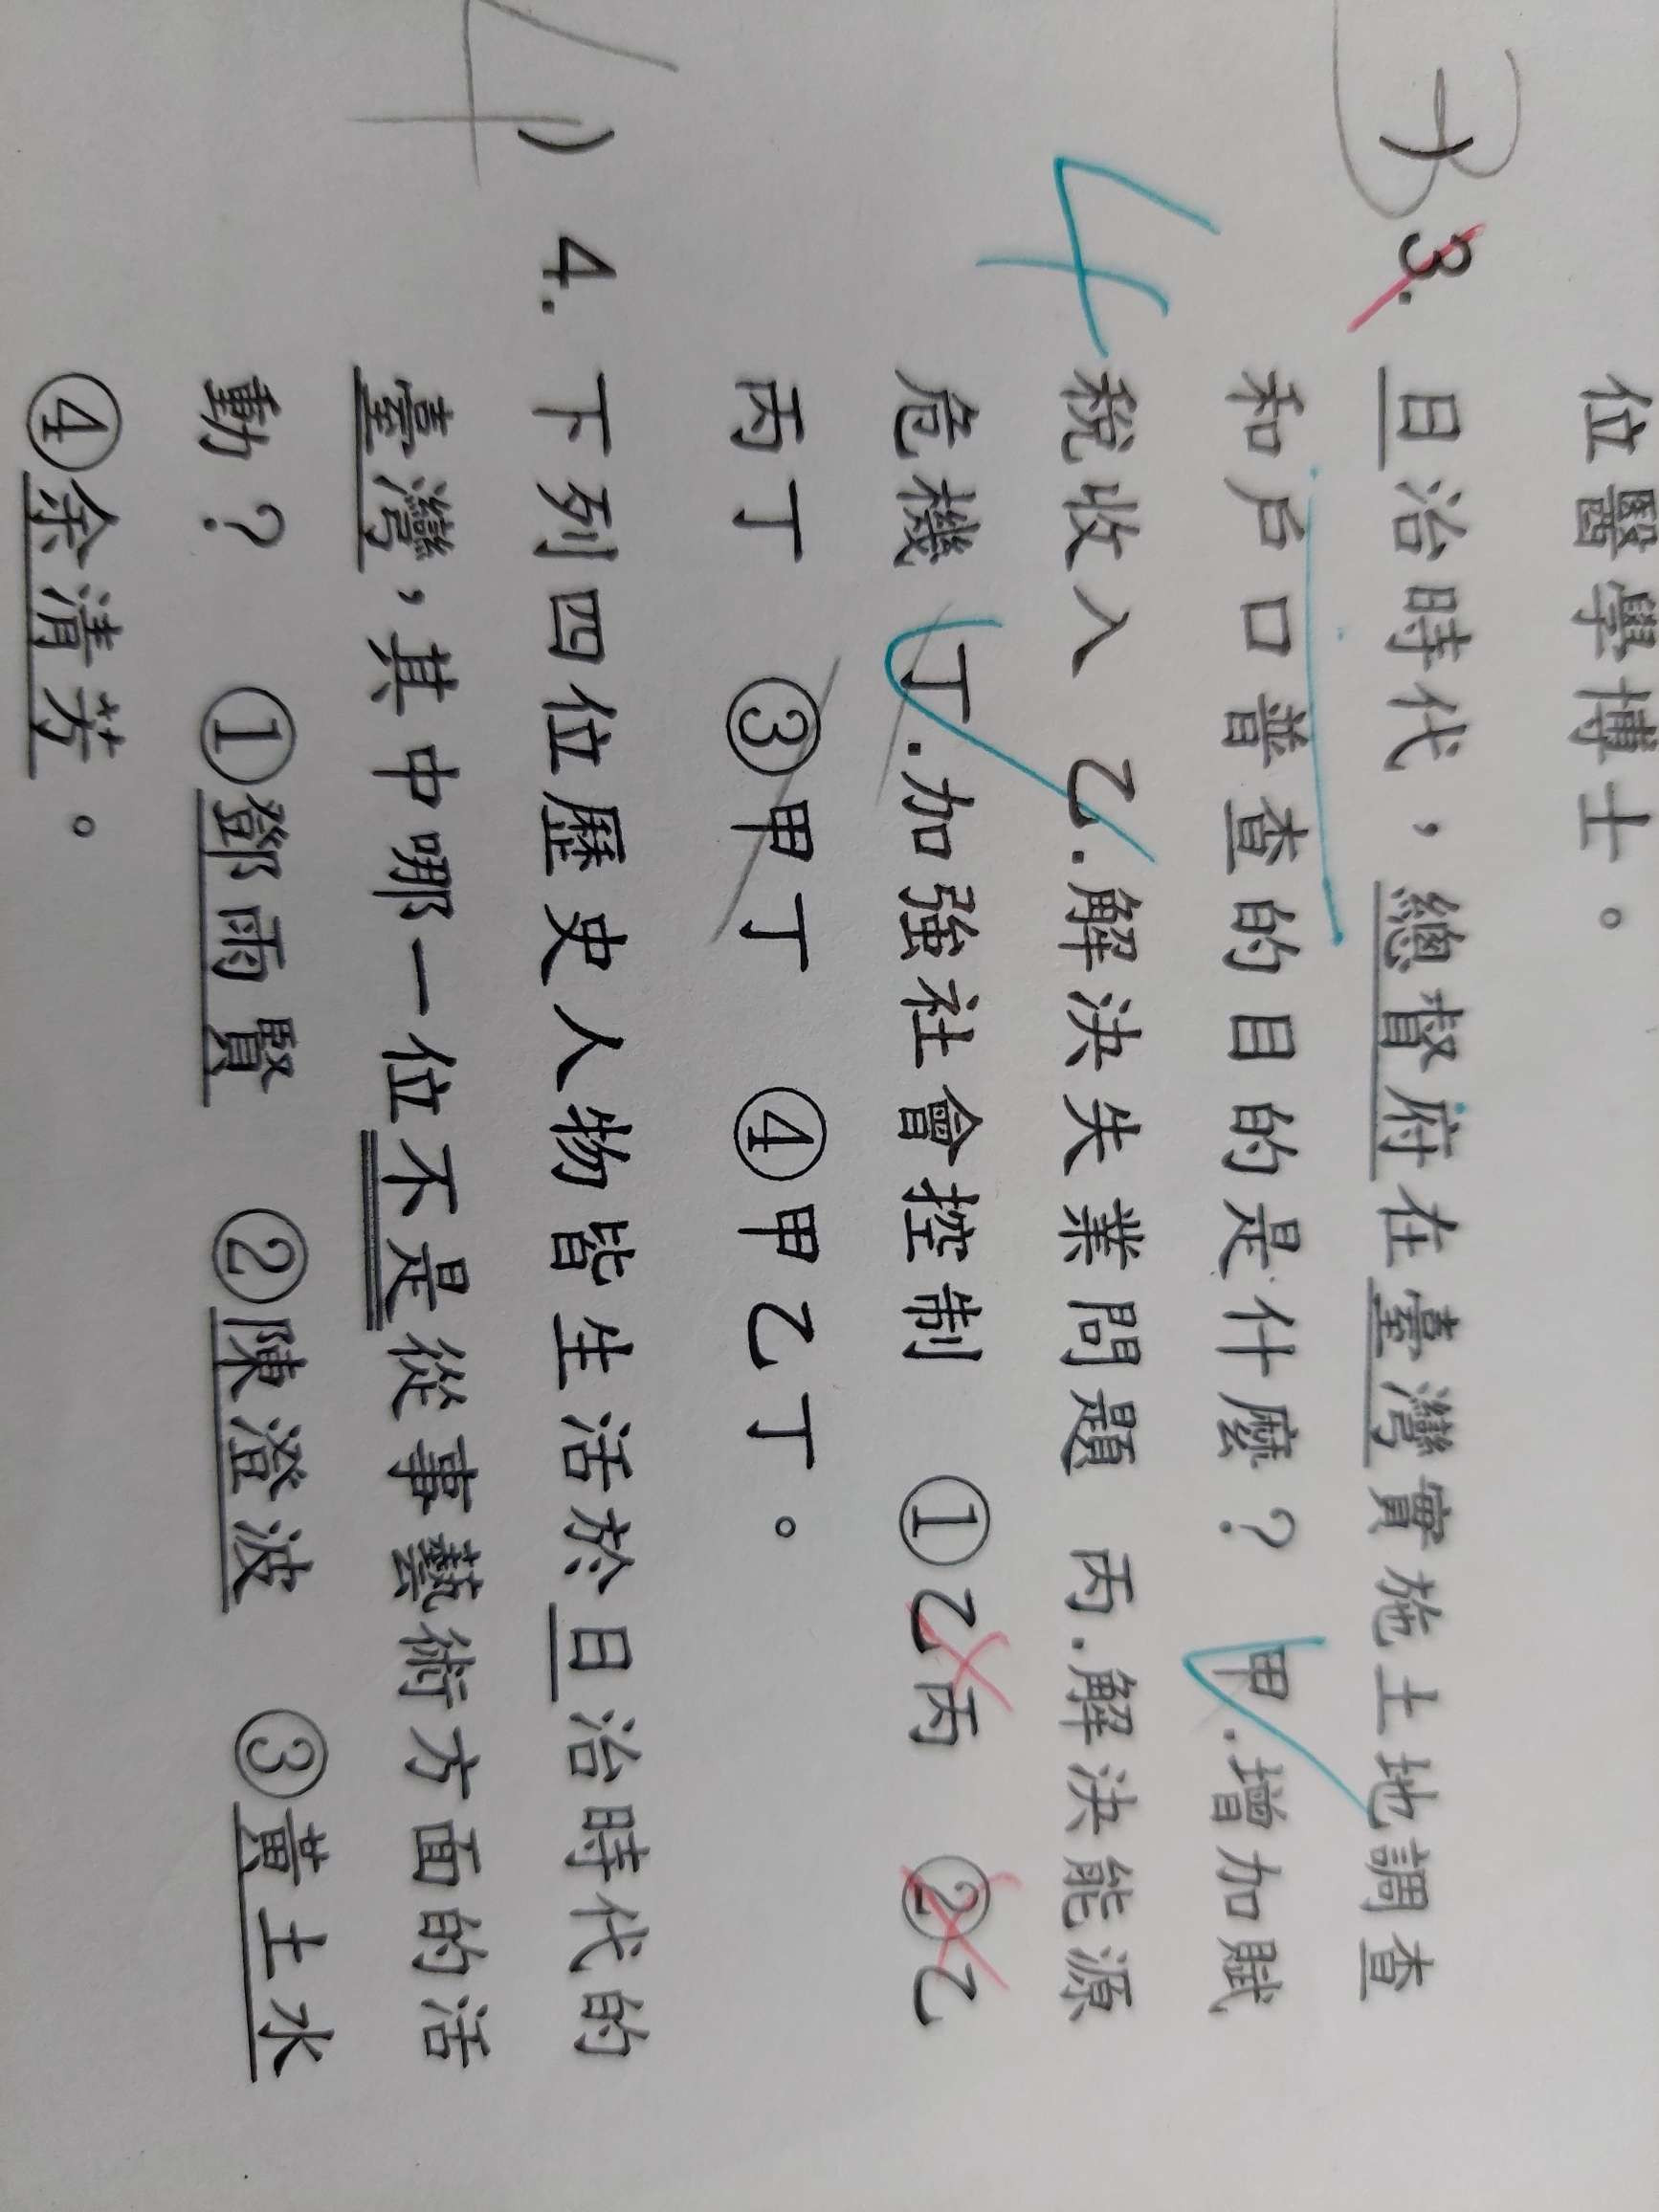 位醫學博士。
3 ) 3. 日治時代，總督府在臺灣實施土地調查
和戶口普查的目的是什麼？ 甲.增加賦
4 稅收入 乙.解決失業問題 丙.解決能源
危機 丁.加強社會控制 ①乙丙 ②乙
丙丁 ③甲丁 ④甲乙丁。
4 ) 4. 下列四位歷史人物皆生活於日治時代的
臺灣，其中哪一位不是從事藝術方面的活
動？ ①鄧雨賢 ②陳澄波 ③黃土水
④余清芳。